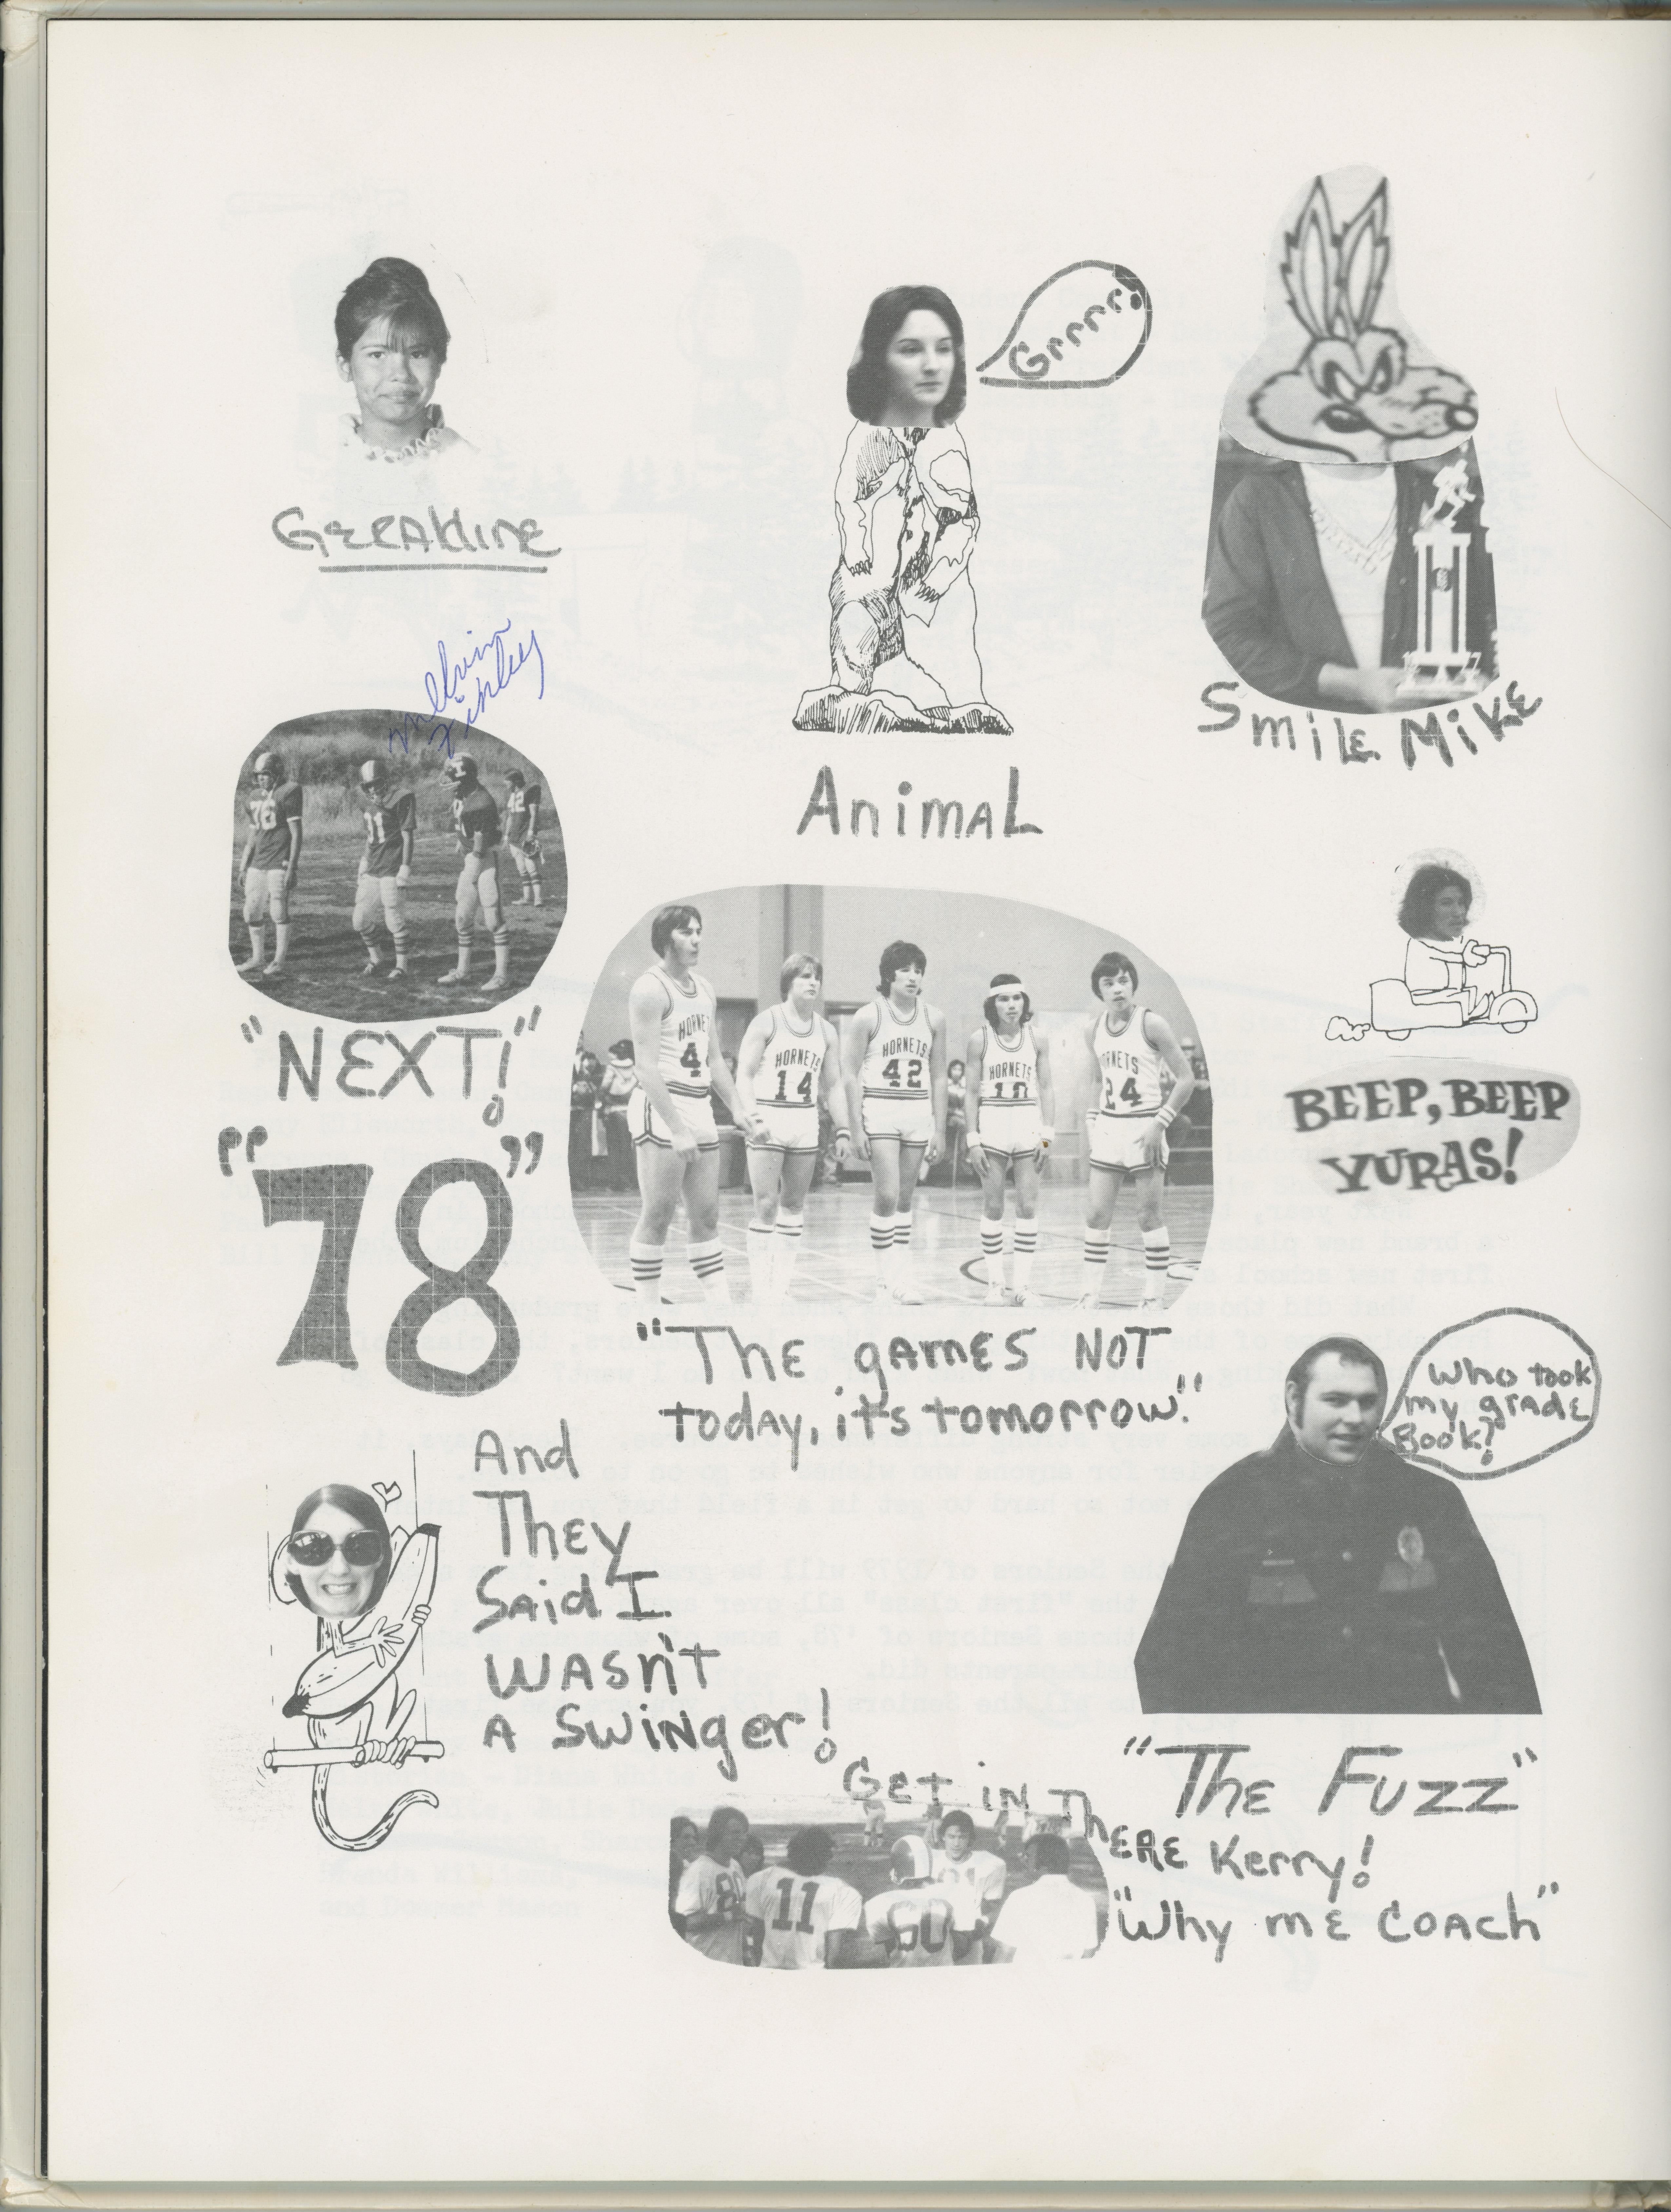 Grrrr!
Geraldine
Smile Mike
Melvin
Animal
76
42
"NEXT!"
HORNETS
14
HORNETS
42
HORNETS
10
24
BEEP, BEEP
YURAS!
"78"
"The games NOT
today, it's tomorrow."
Who took
my grade
Book?
And
They
Said I
Wasn't
A Swinger!
"The Fuzz"
Get in There Kerry!
11
"Why me Coach"